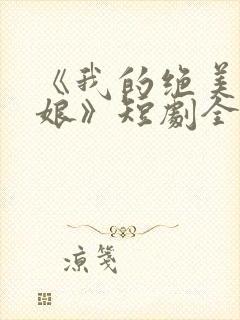 《我的绝美
娘》短剧全
凉笺